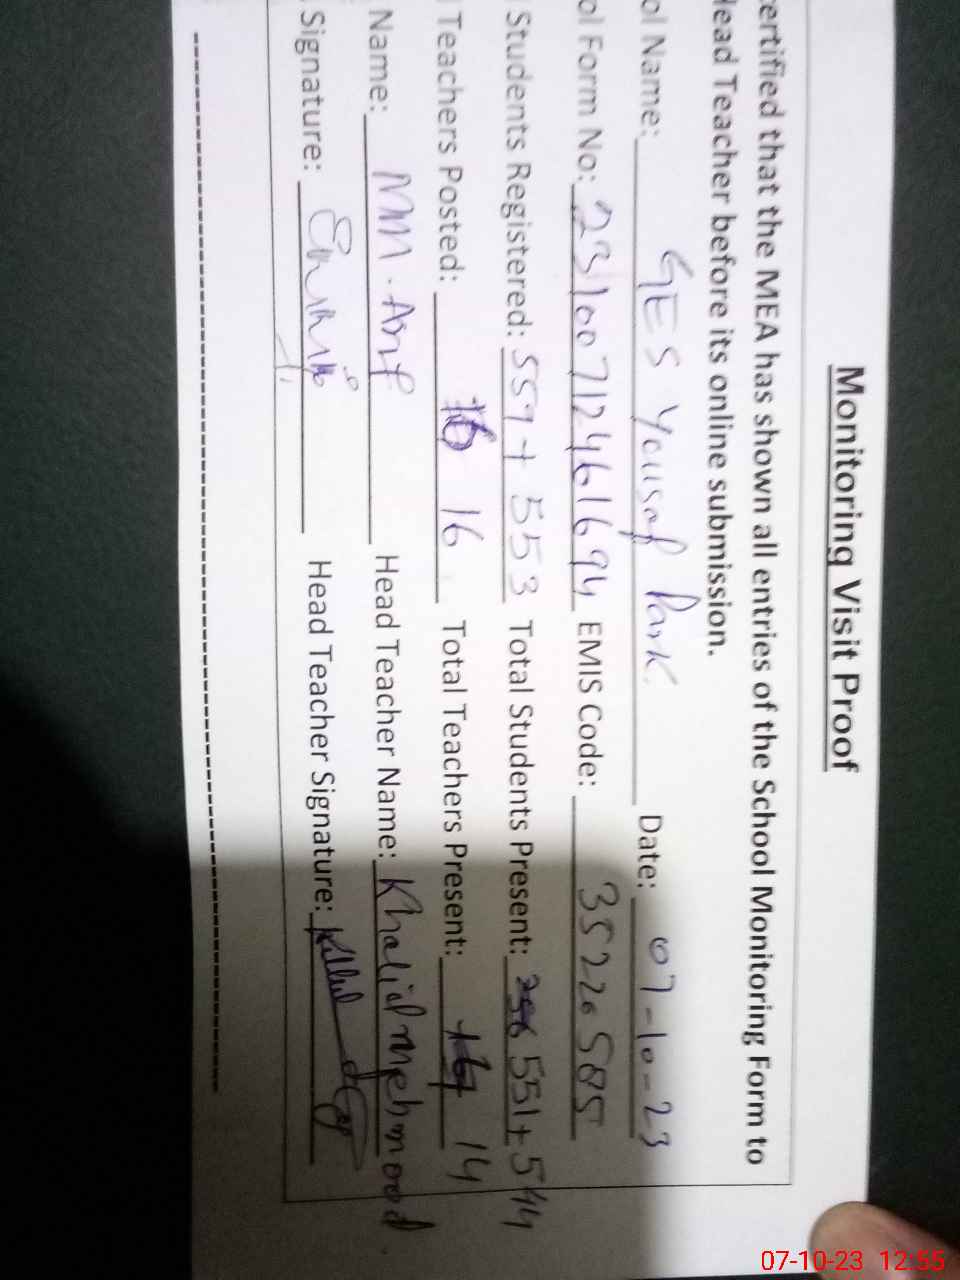 Monitoring Visit Proof
ertified that the MEA has shown all entries of the School Monitoring Form to
Head Teacher before its online submission.
ol Name: GES Yousaf Park Date: 07-10-23
ol Form No: 23100712461694 EMIS Code: 35220585
Students Registered: 557+553 Total Students Present: 551+544
Teachers Posted: 16 Total Teachers Present: 14
Name: MM. Arif Head Teacher Name: Khalid Mehmood
Signature: Head Teacher Signature:
07-10-23 12:55